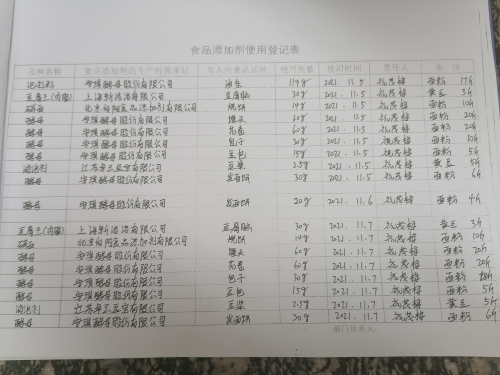 食品添加剂使用登记表
品种名称 食品添加剂的生产经营单位 加入的食品品种 使用剂量 使用时间 责任人 备注
泡打粉 安琪酵母股份有限公司 油条 2021.11.5 面粉
豆腐王(内酯) 上海 有限公司 豆腐脑 30g 2021.11.5 黄豆 3斤
北京 食品添加剂有限公司 烧饼 14g 2021.11.5 面粉 10斤
酵母 安琪酵母股份有限公司 馒头 60g 2021.11.5 面粉 20斤
酵母 安琪酵母股份有限公司 花卷 60g 2021.11.5 面粉 20斤
酵母 安琪酵母股份有限公司 包子 30g 2021.11.5 面粉 10斤
酵母 安琪酵母股份有限公司 豆包 15g 2021.11.5 面粉 5斤
消泡剂 江苏 有限公司 豆浆 2.5g 2021.11.5 黄豆 5斤
酵母 安琪酵母股份有限公司 发面饼 30g 2021.11.5 面粉 6斤
酵母 安琪酵母股份有限公司 发面饼 20g 2021.11.6 面粉 4斤
豆腐王(内酯) 上海 有限公司 豆腐脑 30g 2021.11.7 黄豆 3斤
北京 食品添加剂有限公司 烧饼 14g 2021.11.7 面粉 10斤
酵母 安琪酵母股份有限公司 馒头 60g 2021.11.7 面粉 20斤
酵母 安琪酵母股份有限公司 花卷 60g 2021.11.7 面粉 20斤
酵母 安琪酵母股份有限公司 包子 30g 2021.11.7 面粉
酵母 安琪酵母股份有限公司 豆包 15g 2021.11.7 面粉 5斤
消泡剂 江苏 有限公司 豆浆 2.5g 2021.11.7 黄豆 5斤
酵母 安琪酵母股份有限公司 发面饼 30g 2021.11.7 面粉 6斤
部门负责人: